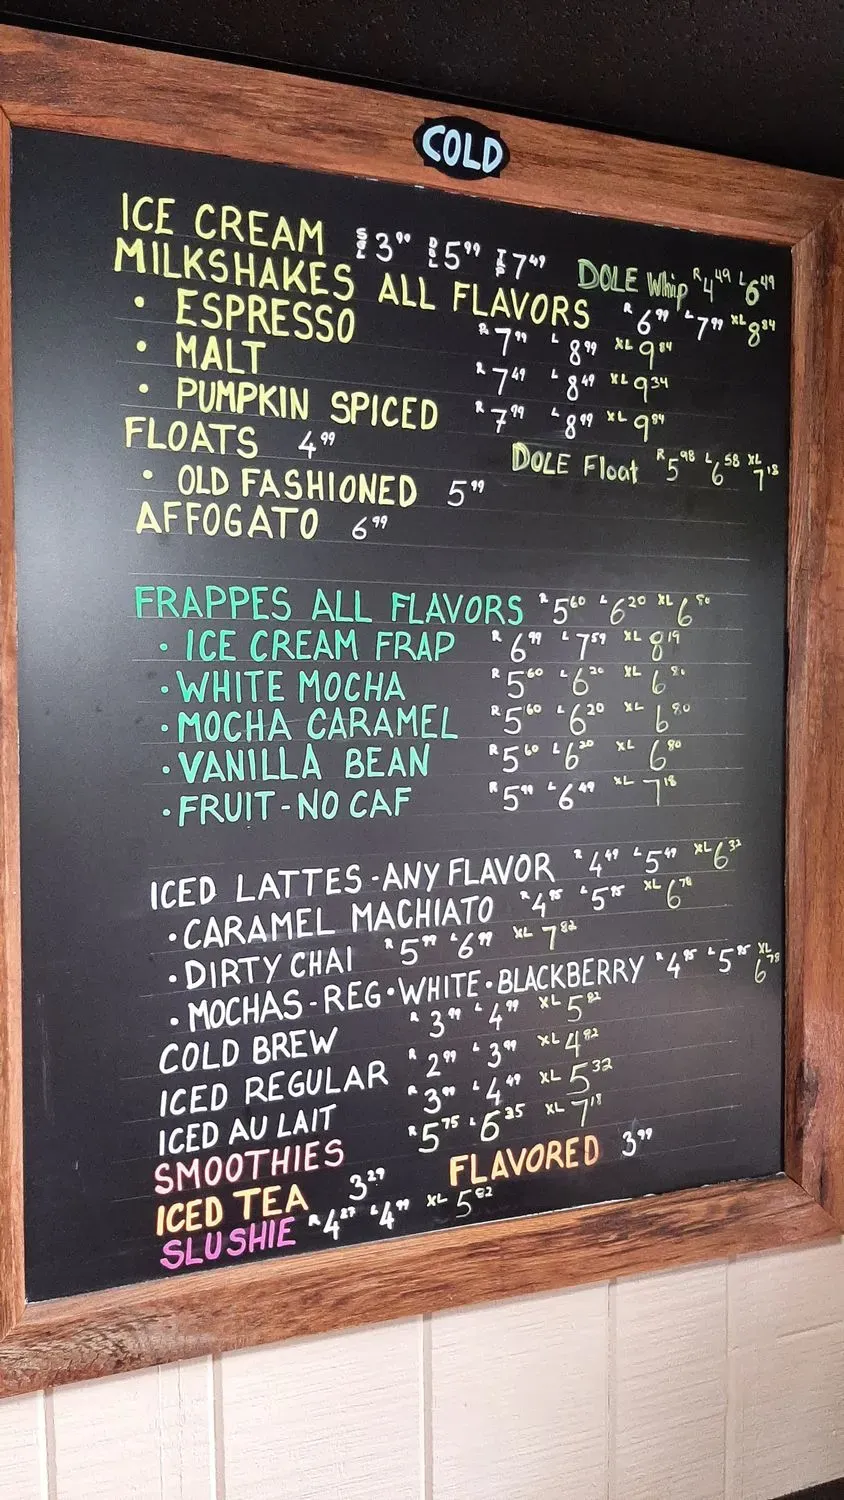 COLD
ICE CREAM SGL 3.99 DBL 5.99 TRP 7.49 DOLE Whip R 4.49 L 6.49
MILKSHAKES ALL FLAVORS R 6.99 L 7.99 XL 8.84
• ESPRESSO R 7.99 L 8.99 XL 9.84
• MALT R 7.49 L 8.49 XL 9.34
• PUMPKIN SPICED R 7.99 L 8.99 XL 9.84
FLOATS 4.99 DOLE Float R 5.98 L 6.58 XL 7.18
• OLD FASHIONED 5.99
AFFOGATO 6.99
FRAPPES ALL FLAVORS R 5.60 L 6.20 XL 6.80
• ICE CREAM FRAP R 6.99 L 7.59 XL 8.19
• WHITE MOCHA R 5.60 L 6.20 XL 6.80
• MOCHA CARAMEL R 5.60 L 6.20 XL 6.80
• VANILLA BEAN R 5.60 L 6.20 XL 6.80
• FRUIT-NO CAF R 5.99 L 6.49 XL 7.18
ICED LATTES-ANY FLAVOR R 4.49 L 5.49 XL 6.32
• CARAMEL MACHIATO R 4.95 L 5.95 XL 6.78
• DIRTY CHAI R 5.99 L 6.99 XL 7.82
• MOCHAS-REG•WHITE•BLACKBERRY R 4.95 L 5.95 XL 6.78
COLD BREW R 3.99 L 4.99 XL 5.82
ICED REGULAR R 2.99 L 3.99 XL 4.82
ICED AU LAIT R 3.99 L 4.49 XL 5.32
SMOOTHIES R 5.75 L 6.35 XL 7.18
ICED TEA 3.29 FLAVORED 3.99
SLUSHIE R 4.27 L 4.99 XL 5.82